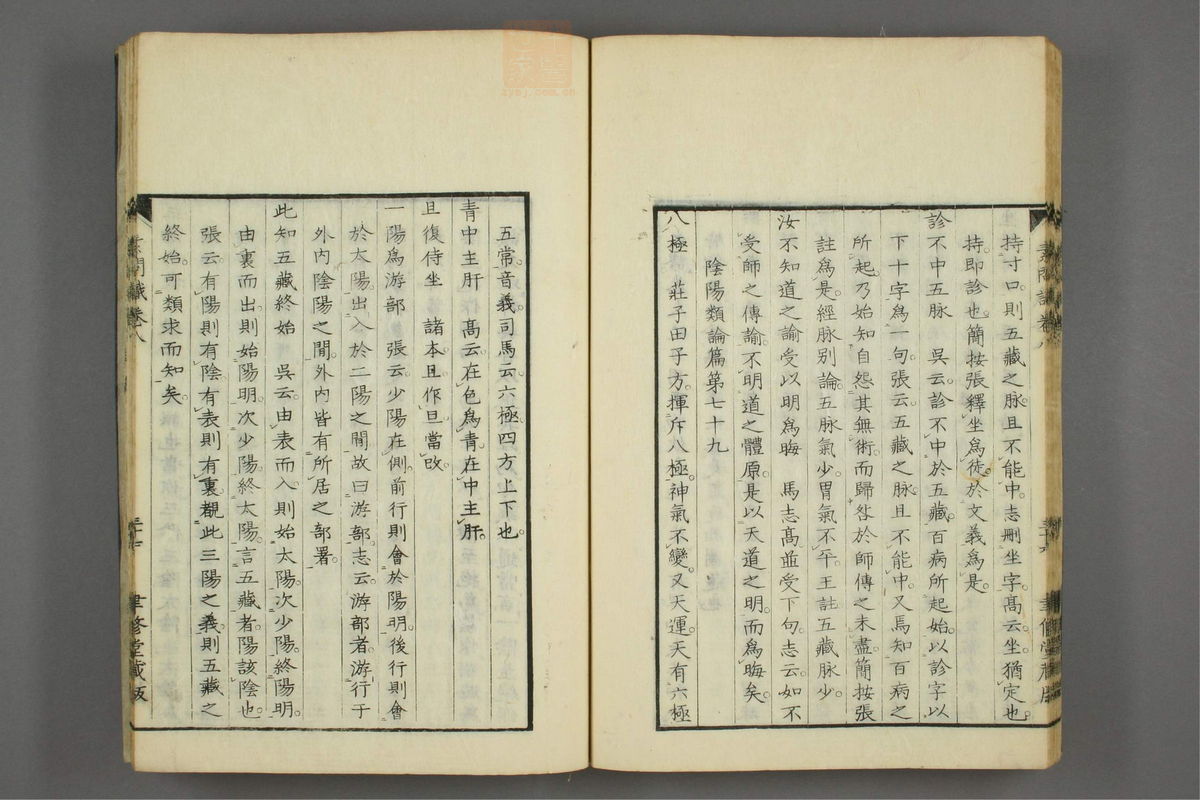 持寸口。則五藏之脉。且不能中。志刪坐字。高云。坐。猶定也。
持即診也。簡按張釋坐爲徒。於文義爲是。
診不中五脉　吳云。診不中於五藏。百病所起。始以診字以
下十字爲一句。張云。五藏之脉。且不能中。又焉知百病之
所起。乃始知自怨其無術。而歸咎於師傳之未盡。簡按張
註爲是。經脉別論。五脉氣少。胃氣不平。王註。五藏脉少。
汝不知道之諭受以明爲晦　馬志高並受下句。志云。如不
受師之傳諭。不明道之體原。是以天道之明而爲晦矣。
陰陽類論篇第七十九
八極　莊子田子方。揮斥八極。神氣不變。又天運。天有六極
素問識卷八
聿修堂藏版
五常。音義。司馬云。六極。四方上下也。
青中主肝　高云。在色爲青。在中主肝。
且復侍坐　諸本且作旦。當改。
一陽爲游部　張云。少陽在側。前行則會於陽明。後行則會
於太陽。出入於二陽之間。故曰游部。志云。游部者。游行于
外內陰陽之間。外內皆有所居之部署。
此知五藏終始　吳云。由表而入。則始太陽。次少陽。終陽明。
由裏而出。則始陽明。次少陽。終太陽。言五藏者。陽該陰也。
張云。有陽則有陰。有表則有裏。觀此三陽之義。則五藏之
終始。可類求而知矣。
素問識卷八
三十七
聿修堂藏版
zysj.com.cn